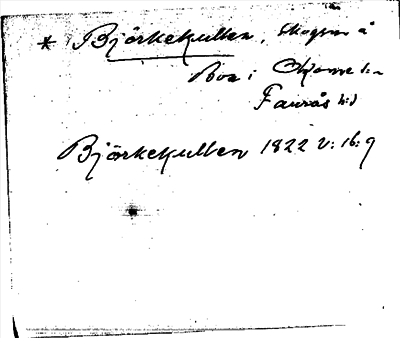 * Björkekullen, skogen å
Boa i Okome sn
Faurås hd
Björkekullen 1822 V: 16: 9